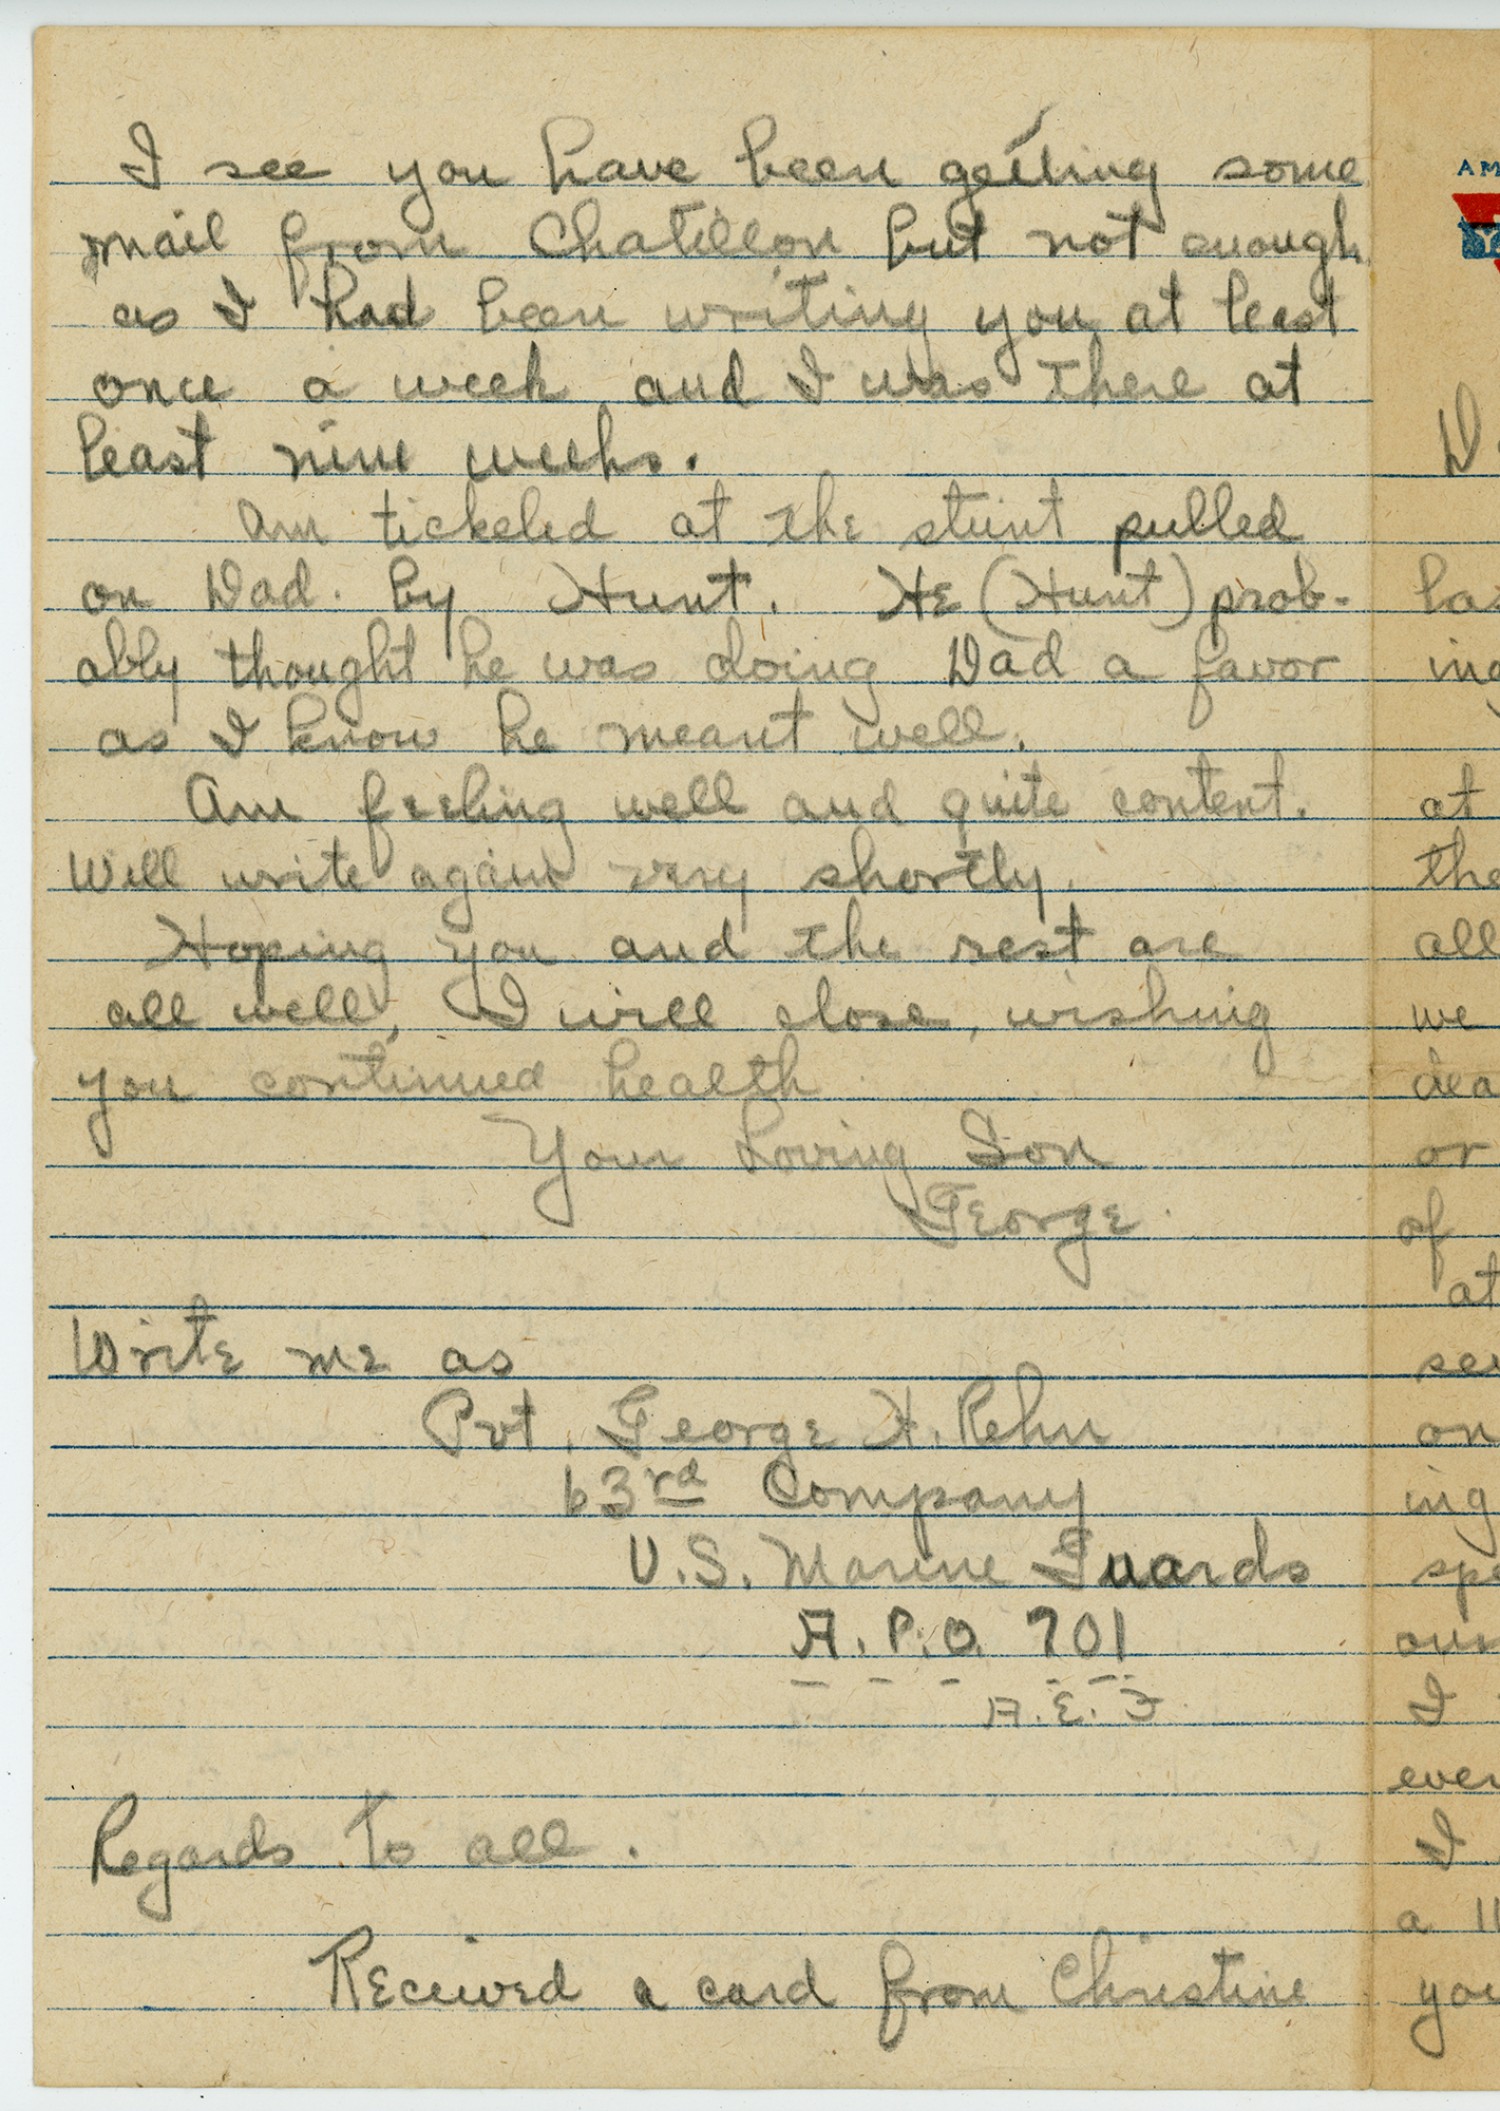 I see you have been getting some
mail from Chatillon but not enough
as I had been writing you at least
once a week and I was there at
least nine weeks.
Am tickeled at the stunt pulled
on Dad. by Hunt. He (Hunt) prob-
ably thought he was doing Dad a favor
as I know he meant well.
Am feeling well and quite content.
Will write again very shortly.
Hoping you and the rest are
all well, I will close, wishing
you continued health
Your Loving Son
George.
Write me as
Pvt. George H. Rehn
63rd Company
U.S. Marine Guards
A.P.O. 701
A.E.F
Regards to all.
Received a card from Christine
AM
Y
ing
at
the
all
we
or
of
at
on
ing
I
I
a